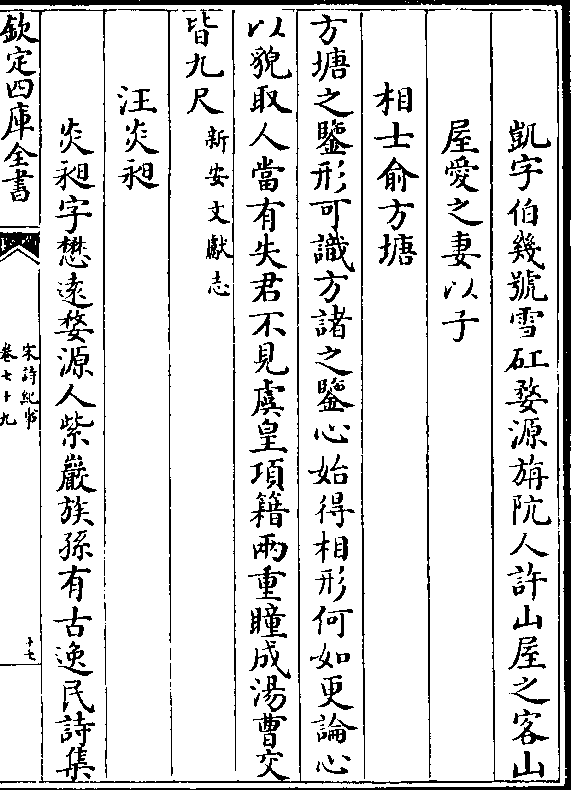 凱字伯幾號雪矼婺源旃阬人許山屋之客山
屋愛之妻以子
相士俞方塘
方塘之鑒形可識方諸之鑒心始得相形何如更論心
以貌取人當有失君不見虞皇項籍兩重瞳成湯曹交
皆九尺新安文獻志
汪炎昶
炎昶字懋遠婺源人紫巖族孫有古逸民詩集
欽定四庫全書
宋詩紀事
卷七十九
十七